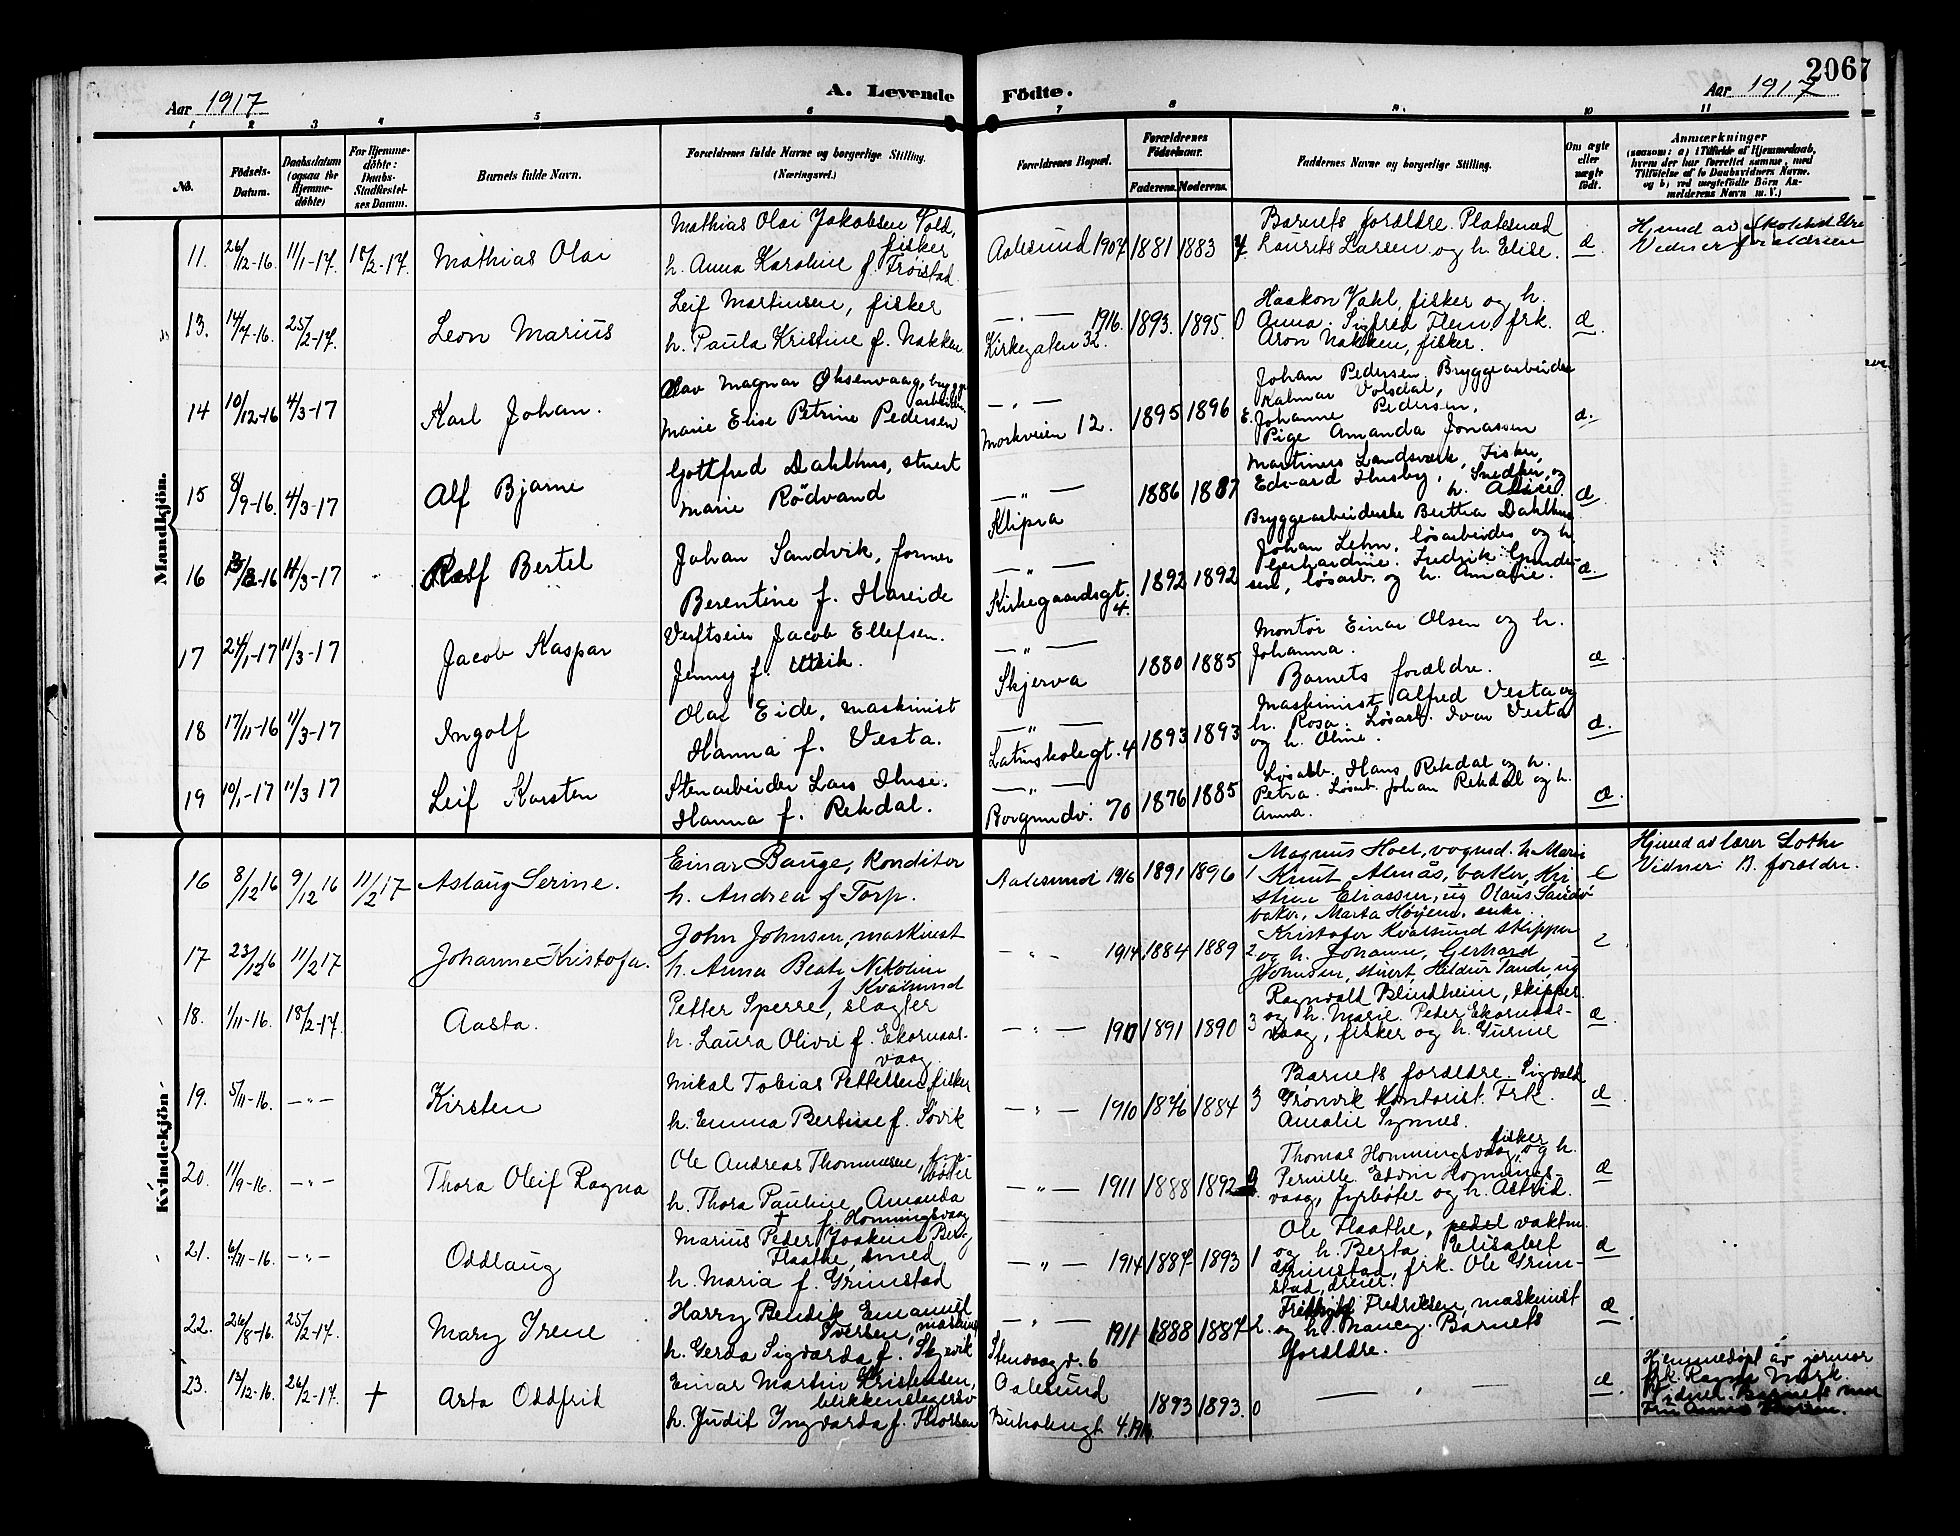 2067
Aar 1917
A. Levende Födte.
Aar 1917
1 2 3 4 5 6 7 8 9. 10 11
No.
Födsels-Datum.
Daabsdatum (ogsaa for Hjemme-döbte)
For Hjemme-döbte: Daabs-Stadfæstel-ses Datum.
Barnets fulde Navn.
Forældrenes fulde Navne og borgerlige Stilling. (Næringsvei.)
Forældrenes Bopæl.
Forældrenes Födselsaar.
Faderens. Moderens.
Faddernes Navne og borgerlige Stilling.
Om ægte eller uægte födt.
Anmærkninger
(saasom: a) i Tilfælde af Hjemmedaab,
hvem der har forrettet samme, med
Tilföielse af to Daabsvidners Navne.
og b) ved uægtefödte Börn An-
melderens Navn m. V.)
Mandkjön.
Mathias Olai Jakobsen Vold, fisker
11. 26/12-16. 11/1-17. 18/2-17. Mathias Olai
h. Anna Karoline f. Frøistad
Aalesund 1907 1881 1883 4
Barnets forældre. Pladesmed
Laurits Larsen og h. Elise. æ
Leif Martinsen, fisker
13. 14/7-16. 25/2-17. Leon Marius
h. Paula Kristine f. Nakken
— " — 1916. Kirkegaten 32. 1893. 1895. 0
Haakon Vahl, fisker og h.
Anna. Sigfred Flem, frk.
Aron Nakken, fisker. æ
Olav Magnar Øksenvaag, brygge arbeider.
14 10/12-16 4/3-17 Karl Johan.
Marie Elise Petrine Pedersen
— " — Morkveien 12. 1895 1896 E.
Johan Pedersen. Bryggearbeider
Kalmar Volsdal,
Johanne Pedersen,
Pige Amanda Jonassen æ.
Gottfred Dahlhus, stuert
15 8/9-16. 4/3-17 Alf Bjarne
Marie Rödvand
— " — Klipra 1886 1887
Martinus Landsværk, Fisker,
Edvard Husby, Snedker, og
h. Alice. æ
Bryggearbeiderske Berttia Dahlhus
Johan Sandvik, former
16 4/3-17 Rolf Bertel
Berentine f. Hareide
— " — Kirkegaardsgt. 4. 1892 1892
Johan Lehn, løsarbeider og h.
Gerhardine. Fredrik Gunder-
sen, løsarb. og h. Amalie. æ.
Verftseier Jacob Ellefsen.
17 24/1-17 11/3-17 Jacob Kaspar
Jenny f. Utvik.
— " — Skjerva 1880 1885
Montör Einar Olsen og h.
Johanna.
Barnets forældre. æ
Olaf Eide, maskinist
18 17/11-16 11/3-17 Ingolf
Hanna f. Vesta.
— " — Latinskolegt. 4 1893 1893
Maskinist Alfred Vesta og
h. Rosa. Løsarb. Ivar Vesta
og h. Oline. æ.
Stenarbeider Lars Huse.
19 10/1-17 11/3 17 Leif Karsten
Hanna f. Rekdal.
— " — Borgundv. 70 1876 1885
Løsarb. Hans Rekdal og h.
Petra. Løsarb. Johan Rekdal og h.
Anna. æ.
Kvindekjön
Einar Bauge, Konditor
16 8/12 16 9/12 16 11/2 17 Aslaug Serine.
h. Andrea f Torp.
Aalesund 1916 1891 1896 1
Magnus Hoel, vognmd. h. Marie
Knut Almås, baker, Kri
stine Eliassen, ug Olaus Sandvi
baker, Marta Høyem, enke.
Hjemd av lærer Lothe
Vidner: B. foræld re.
John Johnsen, maskinist
17 23/12 16 11/2 17 Johanne Kristofa.
h. Anna Beate Nikoline
f Kvalsund
- " - 1914 1884 1889 2
Kristofer Kvalsund skipper
og h. Johanne, Gerhard
Johnsen, stuert Heldur Tande, ug
Petter Sperre, slagter
18. 1/11-16. 18/2-17. Aasta.
h. Laura Olivie f. Ekornaas-
vaag.
— " — 1910 1891 1890 3
Ragnvald Blindheim, skipper
og h. Marie. Peder Ekornaas-
vaag, fisker og h. Gurine æ
Mikal Tobias Pettersen fisker
19. 5/11-16. — " — Kirsten
h. Emma Bertine f. Søvik
— " — 1910 1876 1884 3
Barnets forældre. Sigvald
Grönvik kontorist. Frk.
Amalie Synnes. æ
Ole Andreas Thommesen, fyr-
bøter
20. 11/9-16. — " — Thora Oleif Ragna
h. Thora Pauline Amanda
f. Honningsvaag
— " — 1911 1888 1892
Thomas Honningsvaag, fisker og h.
Pernille Edvin Honnings-
vaag, fyrbøter og h. Astrid. æ
Marius Peder Joakim Berg
Flaathe, smed
21. 6/11-16. — " — Oddlaug
h. Maria f. Grimstad
— " — 1914 1887 1893 1
Ole Flaathe, pedel vaktm.
og h. Berta Elisabet
Grimstad, frk. Ole Grim-
stad, dreier. æ
Harry Bendik Emanuel
Iversen, maskinist
22. 26/8-16. 25/2-17. Mary Irene
h. Gerda Sigvarda f. Skjevik
— " — 1911 Stensvagv. 6 1888 1887 2.
Fredriksen, maskinist
og h. Nancy. Barnets
forældre. æ
Einar Martin Kristensen,
blikkenslagersv
23. 13/12-16. 26/2-17. † Asta Oddfrid
h. Judit Ingvarda f. Thorsen
Aalesund
Buholmgt 4. 1916. 1893 1893. 0 — " — æ
Hjemmedøpt av jormor
frk. Ragna Mørk.
Vidner: Barnets mor
Fru Anna Thorsen.